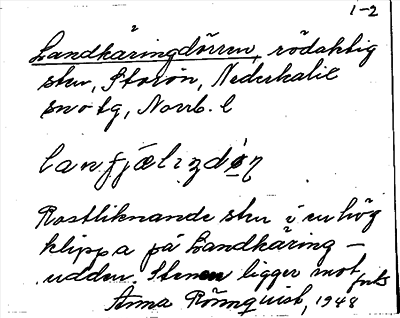 1-2
Landkäringdörren, rödaktig
sten, Storön, Nederkalix
snotg, Norrb. l
lanfjælizdøn
Rostliknande sten i en hög
klippa på Landkäring-
udden. Stenen ligger mot
Anna Rönnquist, 1948